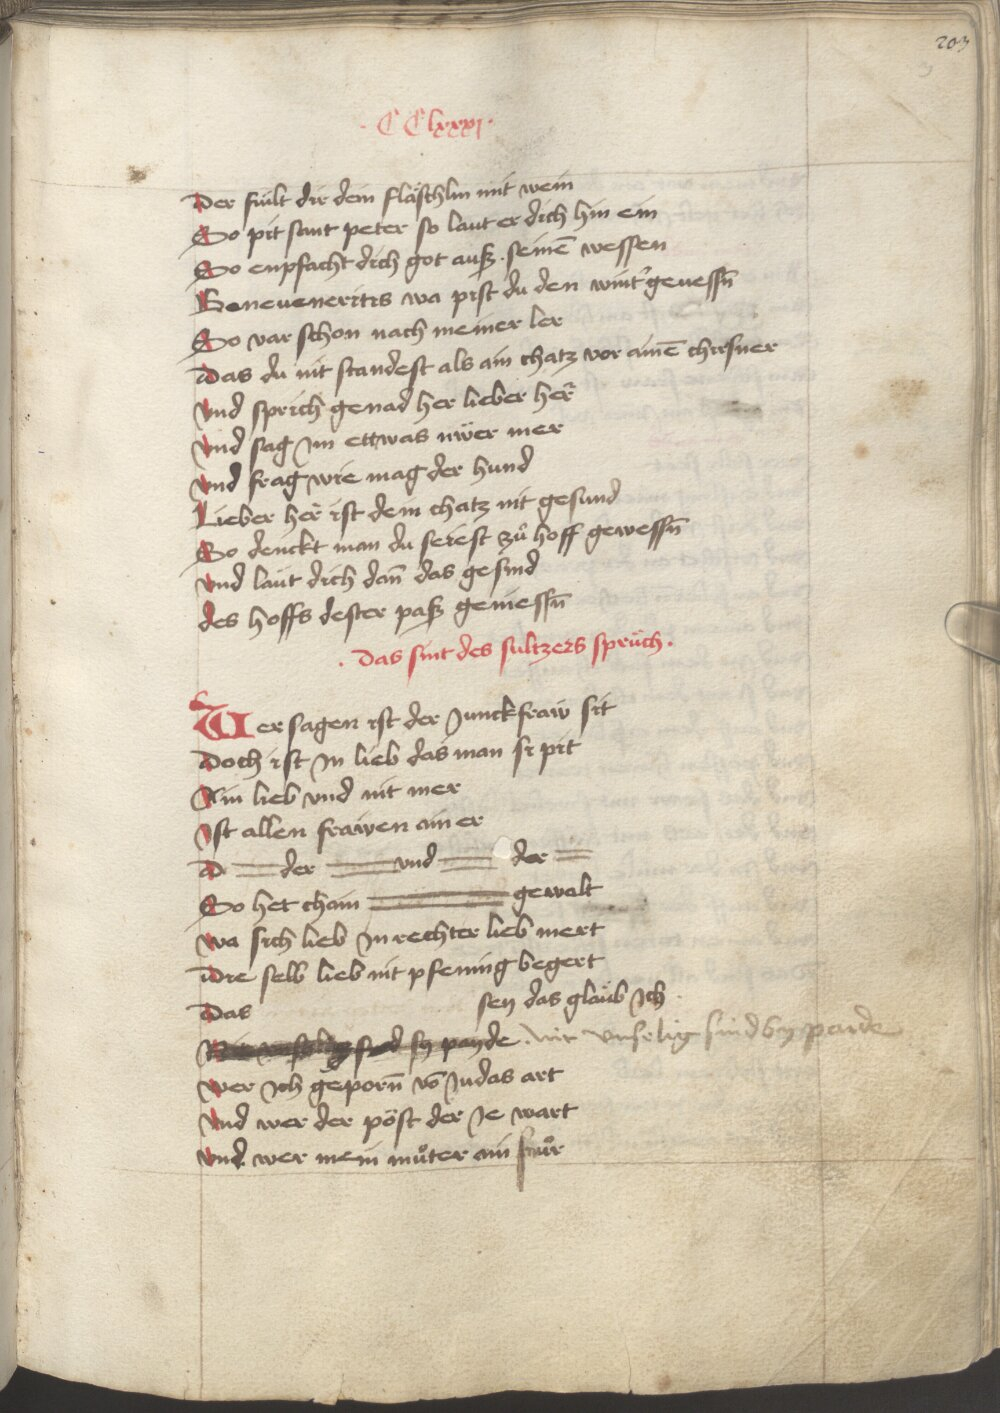 203
· CClxxxj ·
Der füllt dir dein fläschlin mit wein
So pit sant peter so laut er dich hin ein
So enpfacht dich got auß seinē wessen
Beneueneritis wa pist du den wint' gewessn̄
So var schon nach meiner ler
Das du nit standest als ain chatz vor ainē chirsner
Vnd sprich genad her lieber her̄
Vnd sag Jm ettwas nwer mer
Vnd frag wie mag der hund
Lieber her̄ ist dein chatz nit gesund
So denckt man du seiest zů hoff gewessn̄
Vnd laüt dich dan̄ das gesind
des hoffs dester paß geniessn̄
· Das sint des sultzers sprüch ·
Versagen ist der Junckfraw sit
Doch ist Jn lieb das man si pit
Ain lieb vnd nit mer
Jst allen frawen ain er
D der vnd der
So het chain gewalt
Wa sich lieb Jn rechter lieb mert
Die selb lieb nit pfening begert
Das sey das glaüb Jch
sy payde . wie vnselig sind sy payde
Wer Jch geporn̄ vō Judas art
Vnd wer der pöst der Je wart
Vnd wer mein můter ain hůr